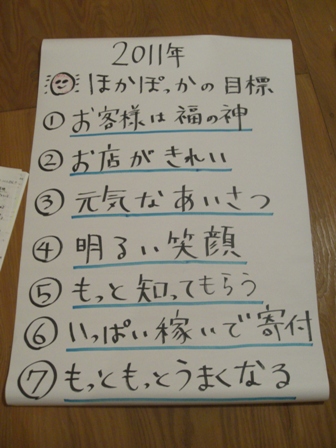 2011年
ほかぽっかの目標
① お客様は福の神
② お店がきれい
③ 元気なあいさつ
④ 明るい笑顔
⑤ もっと知ってもらう
⑥ いっぱい稼いで寄付
⑦ もっともっとうまくなる